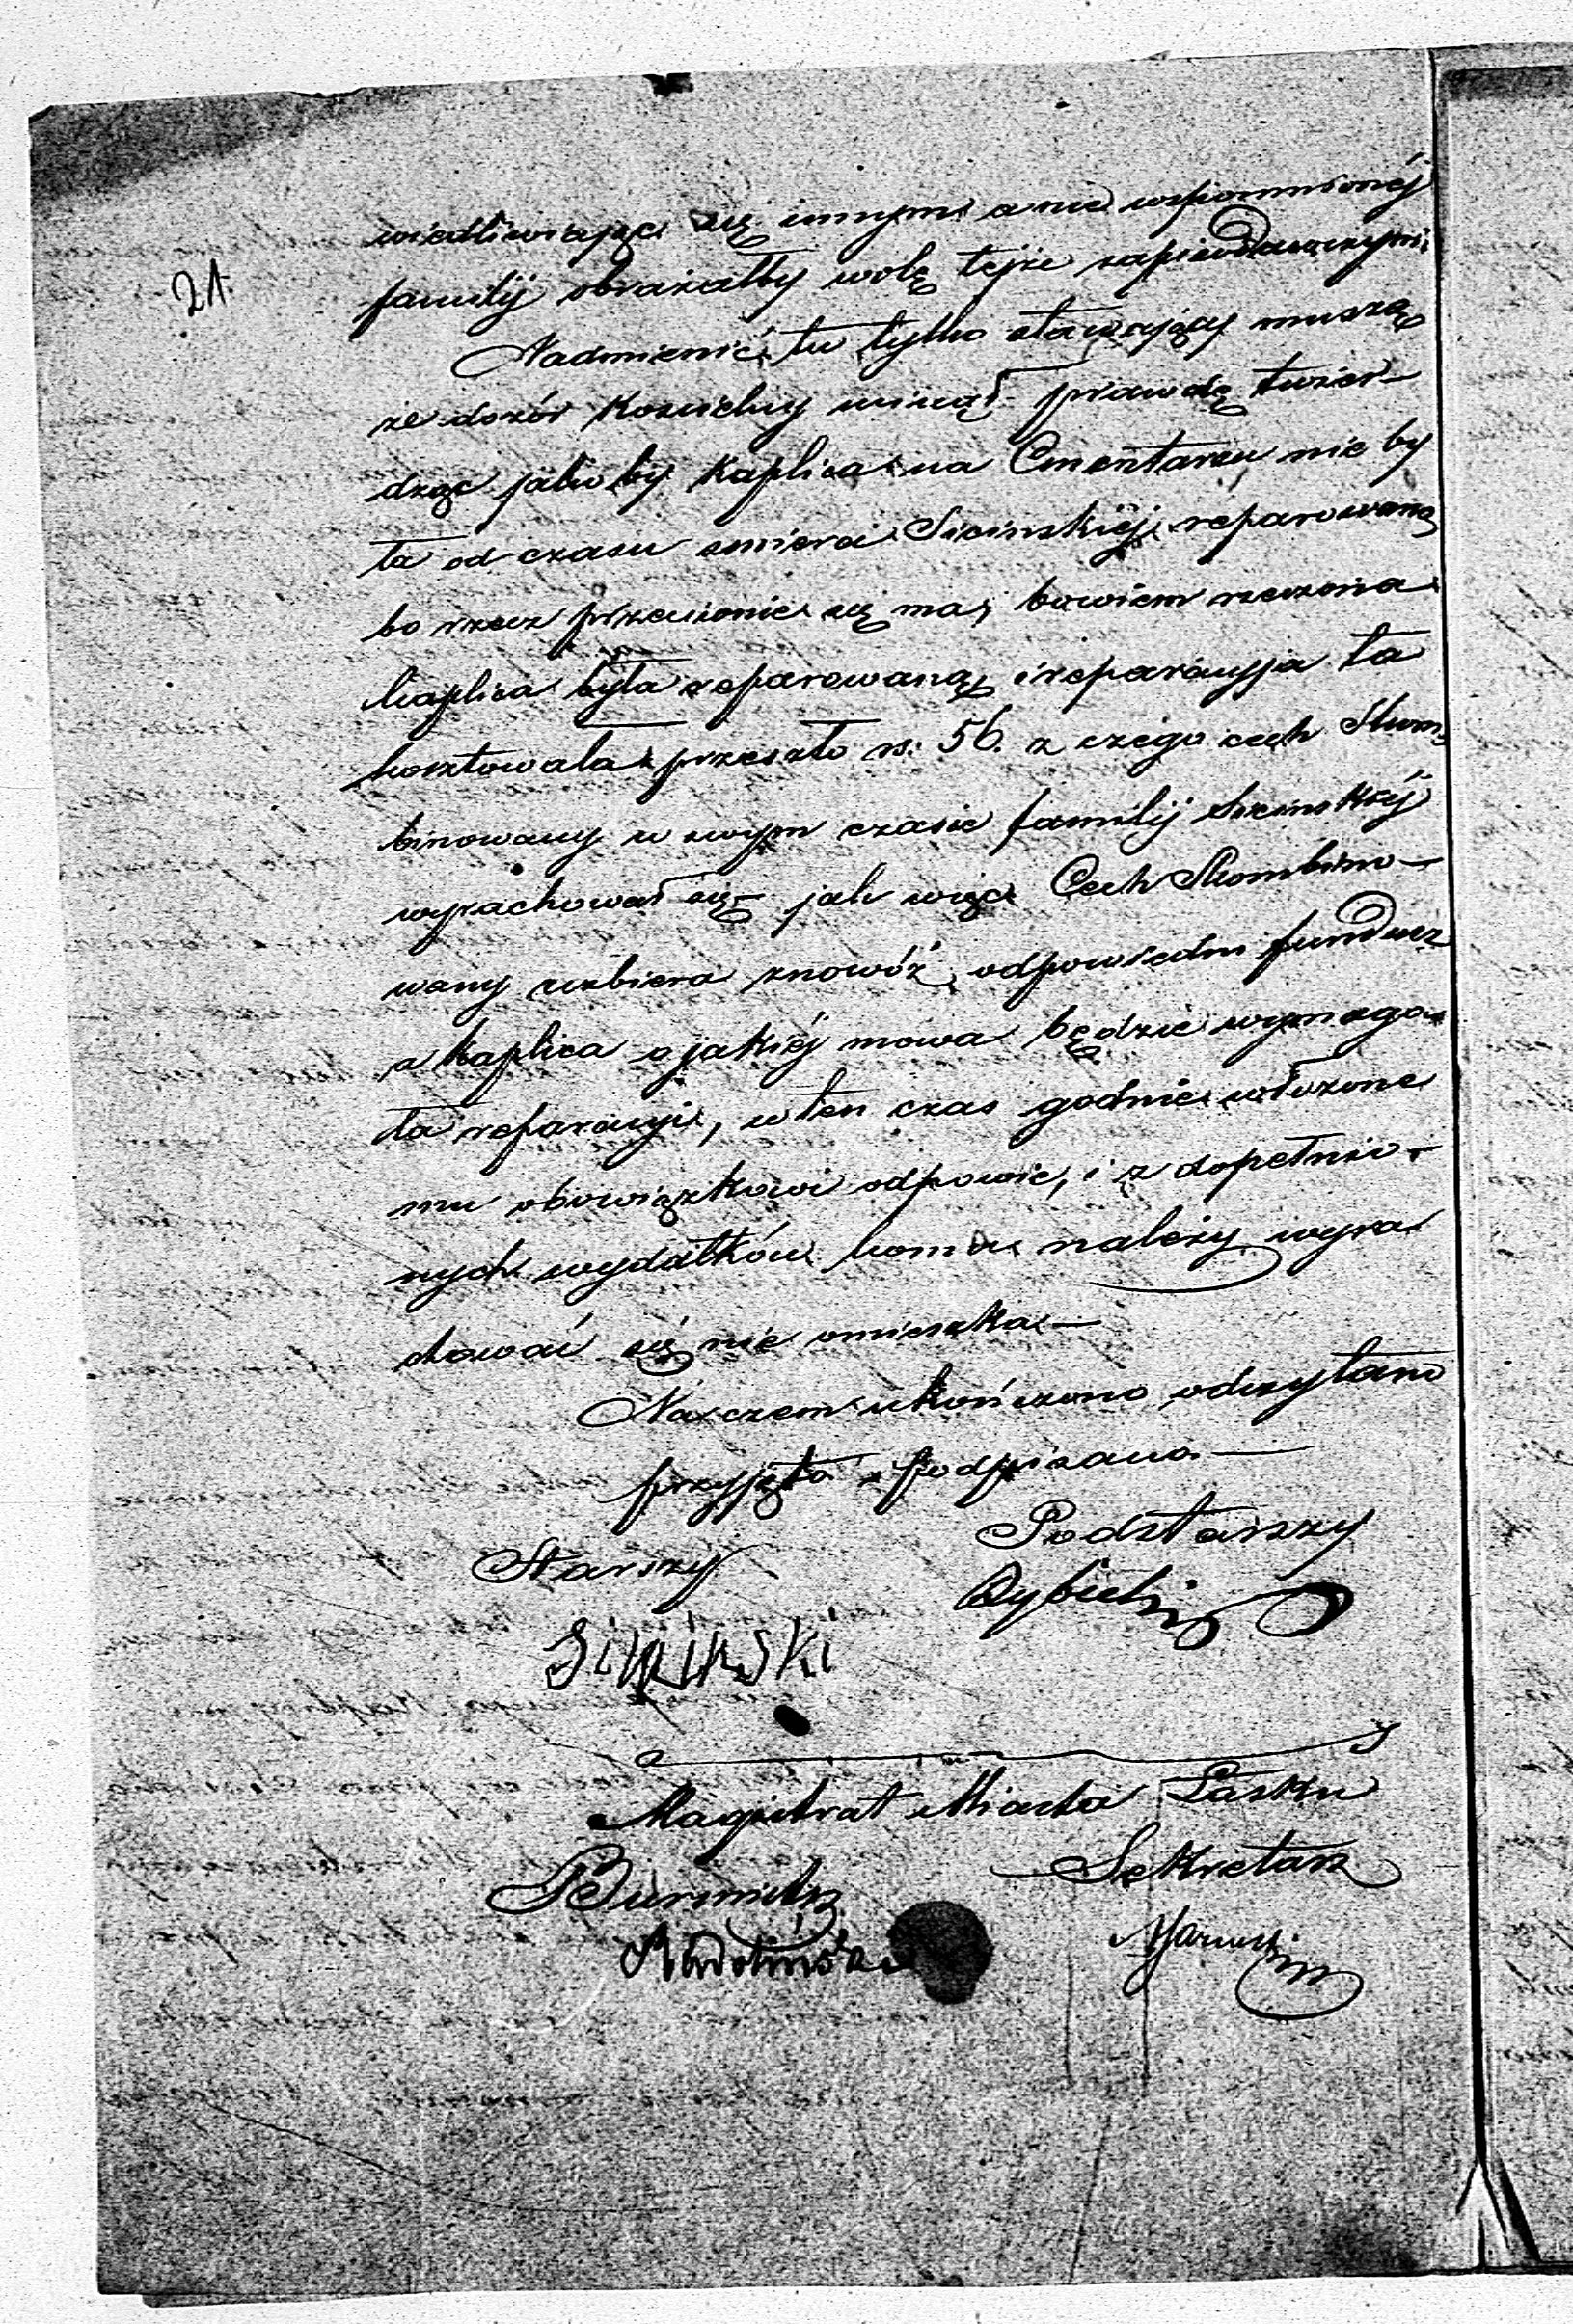 21.
wiedliwiające się innym a nie wspomnionéj
familij obrażałby wolę tejże zapisodawczyni
Nadmienić tu tylko stawający muszą
że dozór Kościelny minął prawdę twier-
dząc jakoby Kaplica na Cmentarzu nie by
ła od czasu smierci Sicinskiéj reparowaną
bo rzecz przeciwnie się ma, bowiem rzeczona
kaplica była reparowaną, i reparacyja ta
kosztowała przeszło rs: 56. z czego cech Skom
binowany w swym czasie familij Sicinskiéj
wyrachował się – jak więc Cech Skombino-
wany uzbiera znowóż odpowiedni fundusz
a kaplica o jakiéj mowa będzie wymaga-
ła reparacyi, w ten czas godnie włożone
mu obowiązkowi odpowie, i z dopełnio-
nych wydatków komu należy wyra
chować się nie omieszka –
Na czem ukończono, odczytano
przyjęto i podpisano. –
Starszy Podstarszy
Magistrat Miasta Łasku
Burmistrz Sekretarz